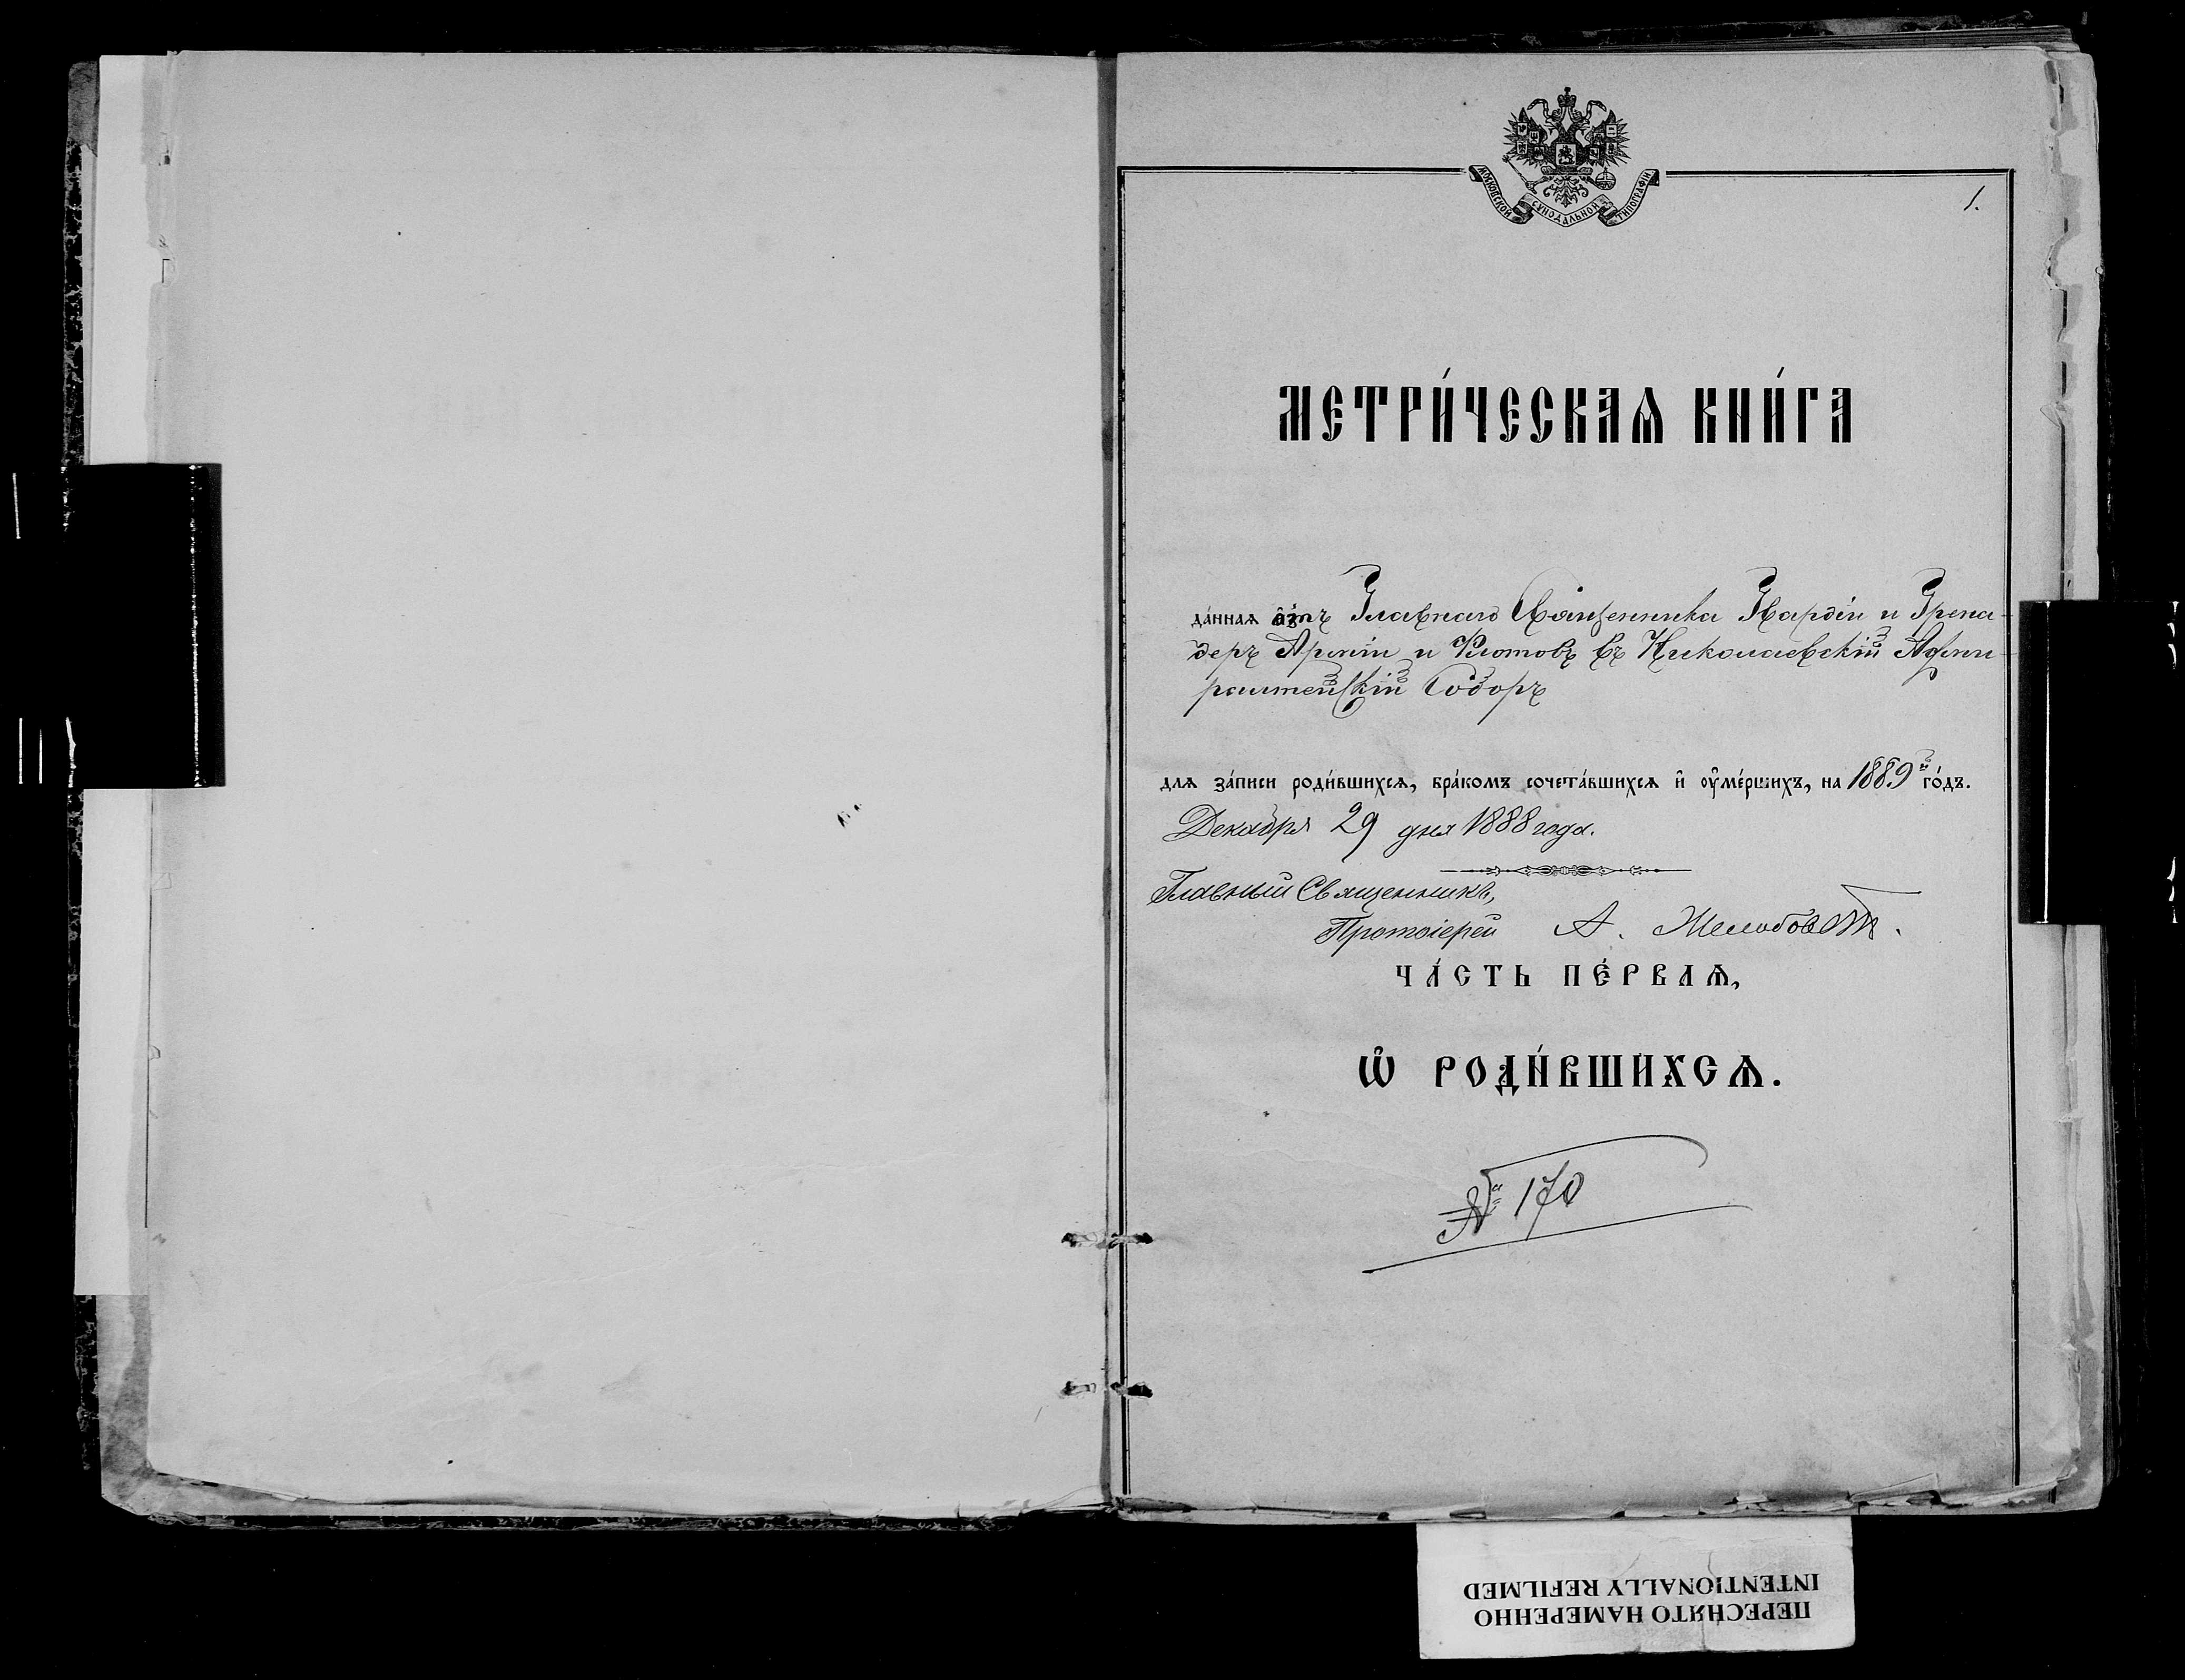 МОСКОВСКОЙ СѴНОДАЛЬНОЙ ТИПОГРАФІИ
1.
МЕТРИ́ЧЕСКАѦ КНИ́ГА
да́нная отъ Главнаго Священника Гвардіи и Грена-
деръ Арміи и Флотовъ въ Николаевскій Адми-
ралтейскій Соборъ
для за́писи роди́вшихсѧ, бра́комъ сочета́вшихсѧ и҆ оу҆ме́ршихъ, на 1889й го́дъ.
Декабря 29 дня 1888 года.
Главный Священникъ,
Протоіерей А. Желобовскій.
ЧА́СТЬ ПЕ́РВАѦ,
Ѽ РОДИ́ВШИХСѦ.
№ 170
ПЕРЕСНЯТО НАМЕРЕННО
INTENTIONALLY REFILMED